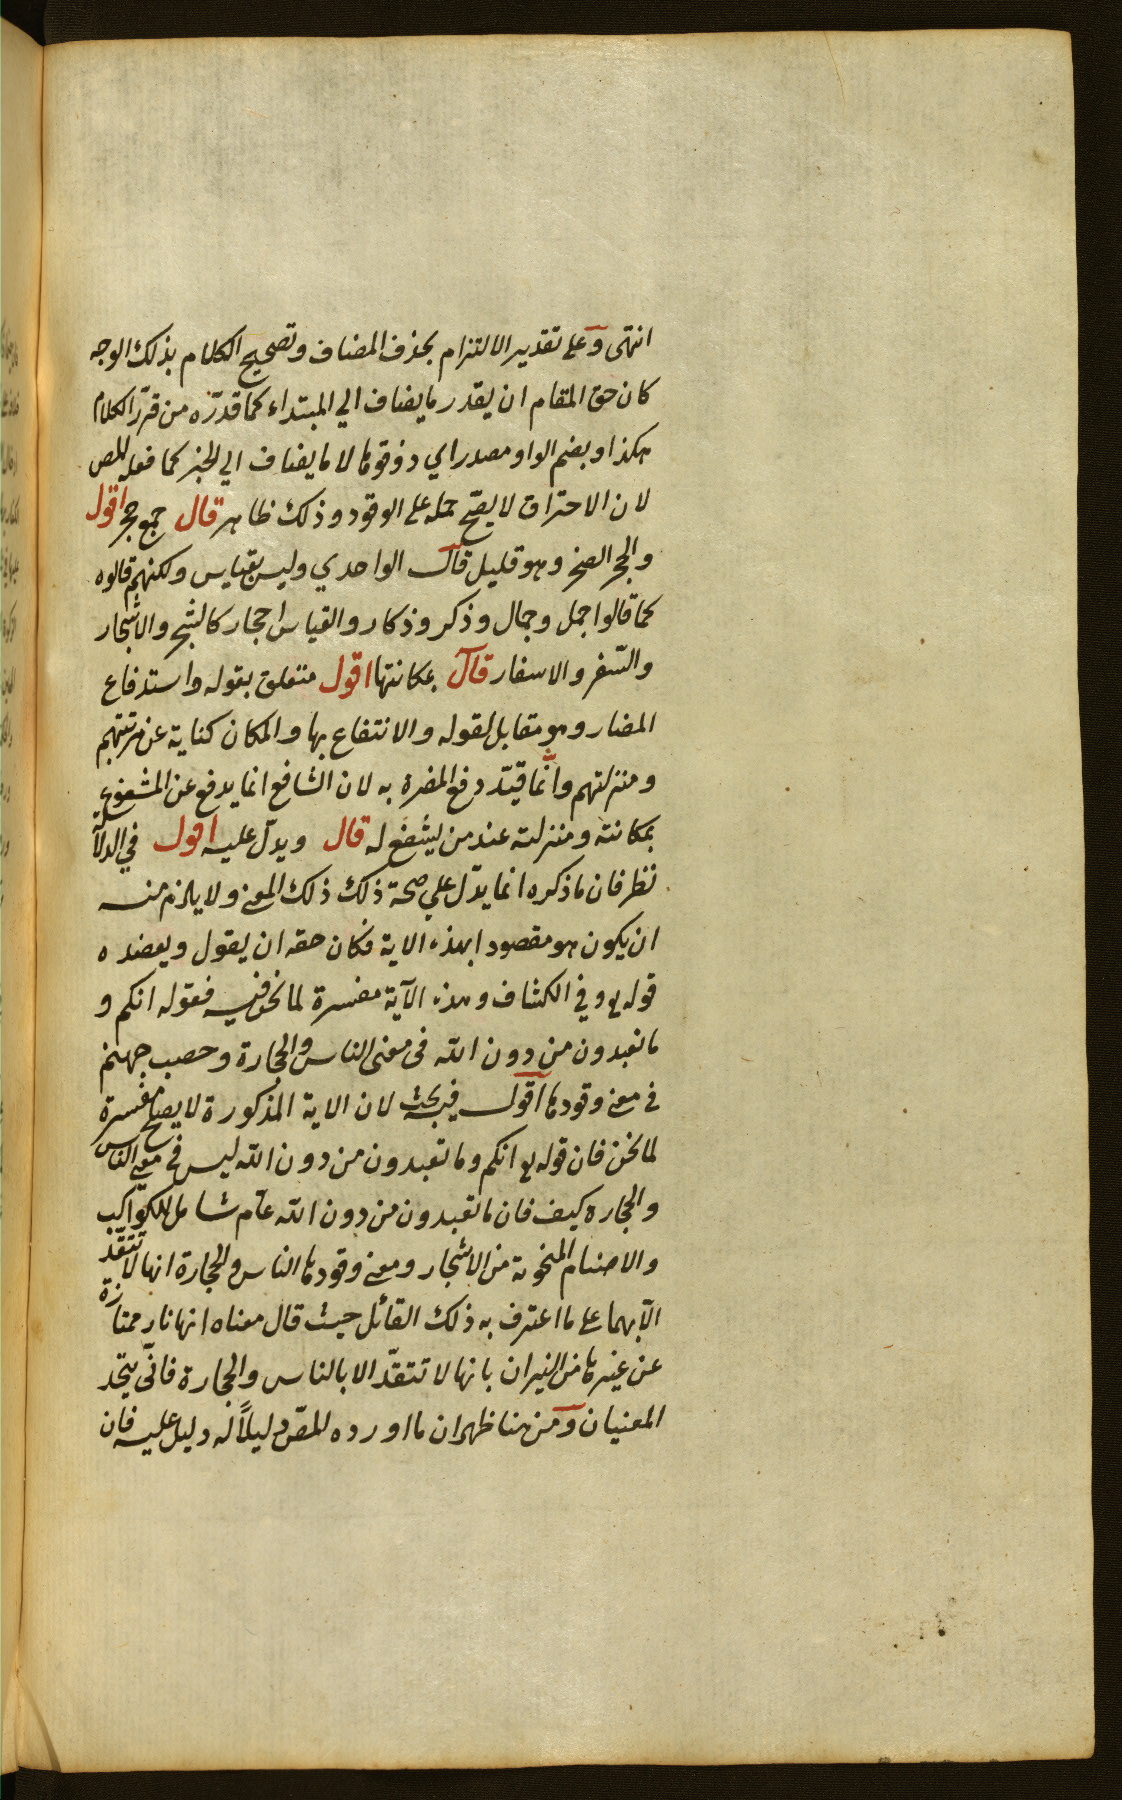 انتهى وعلى تقدير الالتزام بحذف المضاف وتصحيح الكلام بذلك الوجه
كان حق المقام ان يقدر ما يضاف الي المبتداء كما قدّره من قرّر الكلام
هكذا وبضم الواو مصدر اي ذوقوها لا ما يضاف الي الخبر كما فعله المص
لان الاحتراق لا يصحّ حمله على الوقود وذلك ظاهر قال جمع حجر اقول
والحجر الصخر وهو قليل قال الواحدي وليس بقياس ولكنهم قالوه
كما قالوا جمل وجمال وذكر وذكار والقياس احجار كالشجر والاشجار
والسّفر والاسفار قال بمكانتها اقول متعلق بقوله واستدفاع
المضار وهو مقابل لقوله والانتفاع بها والمكان كناية عن مرتبتهم
ومنزلتهم وانّما قيّد دفع المضرة به لان الشافع انما يدفع عن المشفوع له
بمكانته ومنزلته عند من يشفع له قال ويدلّ عليه اقول في الدلالة
نظر فان ما ذكره انما يدّل علي صحة ذلك ذلك المعنى ولا يلزم منه
ان يكون هو مقصودا بهذه الاية فكان حقه ان يقول ويعضده
قوله تع وفي الكشاف وهذه الآية مفسرة لما نحن فيه فقوله انكم و
ما تعبدون من دون الله فى معنى الناس والحجارة وحصب جهنم
في معنى وقودها اقول فيه بحث لان الاية المذكورة لا يصلح مفسرة
لما نحن فان قوله تع انكم وما تعبدون من دون الله ليس في معنى الناس
والحجارة كيف فان ما تعبدون من دون الله عامّ شامل للكواكب
والاصنام المنحوتة من الاشجار ومعنى وقودها الناس والحجارة انها لا تتقد
الّا بهما على ما اعترف به ذلك القائل حيث قال معناه انها نار ممتازة
عن غيرها من النيران بانها لا تتقدّ الا بالناس والحجارة فانّي يتّحد
المعنيان ومن هنا ظهر ان ما اورده المصّ دليلًا له دليل عليه فان